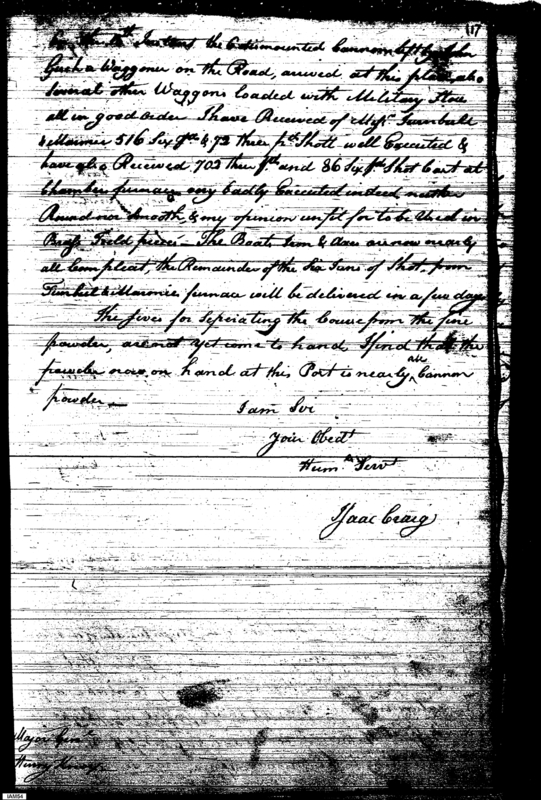 (17
On the 12th Instant the Dismounted Cannon left by John
Guch a Waggoner on the Road, arrived at this place, also
Several other Waggons loaded with Military Stores
all in good order I have Received of Messrs. Turnbull
& Marmie 516 Six Pdr. & 72 three pdr. Shott well Executed &
have also Received 702 three Pdr. and 86 Six Pdr. Shot Cast at
Chamber furnace very badly Executed indeed neither
Round nor Smooth, & my opinion unfit for to be Used in
Brass Field pieces – The Boats, Guns & Axes are now nearly
all Compleat, the Remainder of the Six Tuns of Shot, from
furnace will be delivered in a few days
The Sives for Seperating the Course from the fine
powder, are not yet come to hand, I find that the
powder now on hand at this Post is nearly all Cannon
powder –
I am Sir
Your Obedt
Humle Servt
Isaac Craig
Major Genl
Henry Knox
IAM54